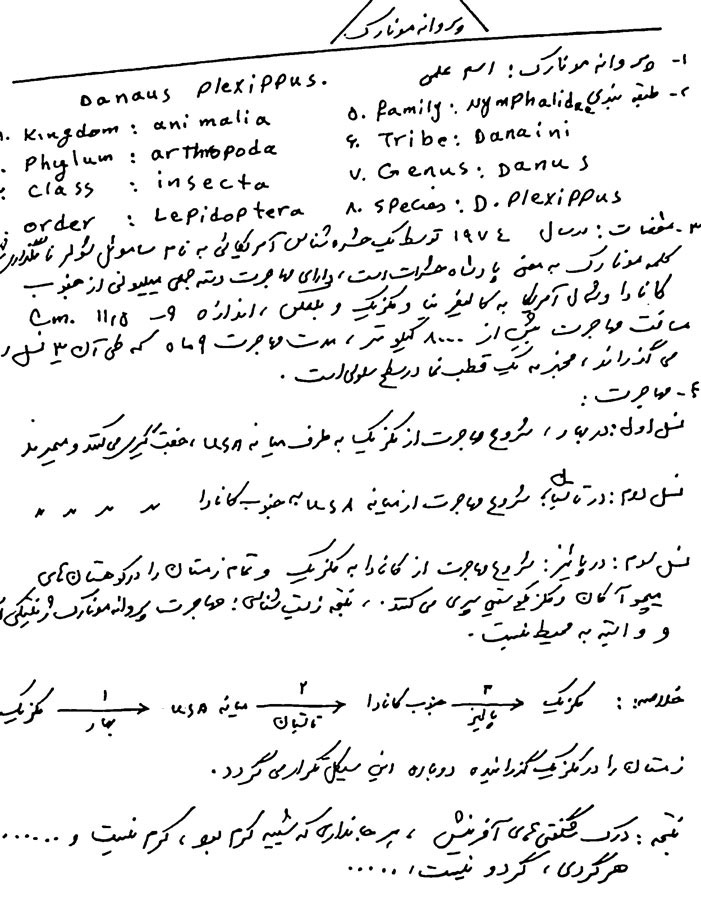 پروانه مونارک
۱- پروانه مونارک: اسم علمی
Danaus Plexippus.
۲- طبقه بندی
Kingdom: animalia
Phylum: arthropoda
class: insecta
order: Lepidoptera
۵. family: Nymphalidae
۶. Tribe: Danaini
۷. Genus: Danus
۸. species: D. Plexippus
۳- مشخصات: در سال ۱۹۷۴ توسط یک حشره شناس آمریکائی به نام ساموئل
کلمه مونارک به معنی پادشاه حشرات است، دارای مهاجرت دسته جمعی میلیونی از جنوب
کانادا و شمال آمریکا به کالیفرنیا و مکزیک و بلعکس، اندازه ۹ – ۱۱,۵ Cm.
مسافت مهاجرت بیش از ۸۰۰۰ کیلومتر، مدت مهاجرت ۹ ماه که طی آن ۳ نسل
می گذراند، مجهز به یک قطب نما در سطح سلولی است.
۴- مهاجرت:
نسل اول: در بهار، شروع مهاجرت از مکزیک به طرف میانه USA، جفت گیری می کنند و میمیرند
نسل دوم: در تابستان: شروع مهاجرت از میانه USA به جنوب کانادا 〃 〃 〃 〃 〃
نسل سوم: در پائیز: شروع مهاجرت از کانادا به مکزیک و تمام زمستان را در کوهستان های
میچو آکان و مکزیکوسیتی سپری می کنند.، نتیجه زیست شناسی: مهاجرت پروانه مونارک ژنتیکی
و وابسته به محیط نیست.
خلاصه: مکزیک ۱ بهار → میانه USA ۲ تابستان → جنوب کانادا ۳ پائیز → مکزیک
زمستان را در مکزیک گذرانیده دوباره این سیکل تکرار می گردد.
نتیجه: درک شگفتی های آفرینش، هر جانداری که شبیه کرم بود، کرم نیست و ......
هر گردی، گردو نیست، .....